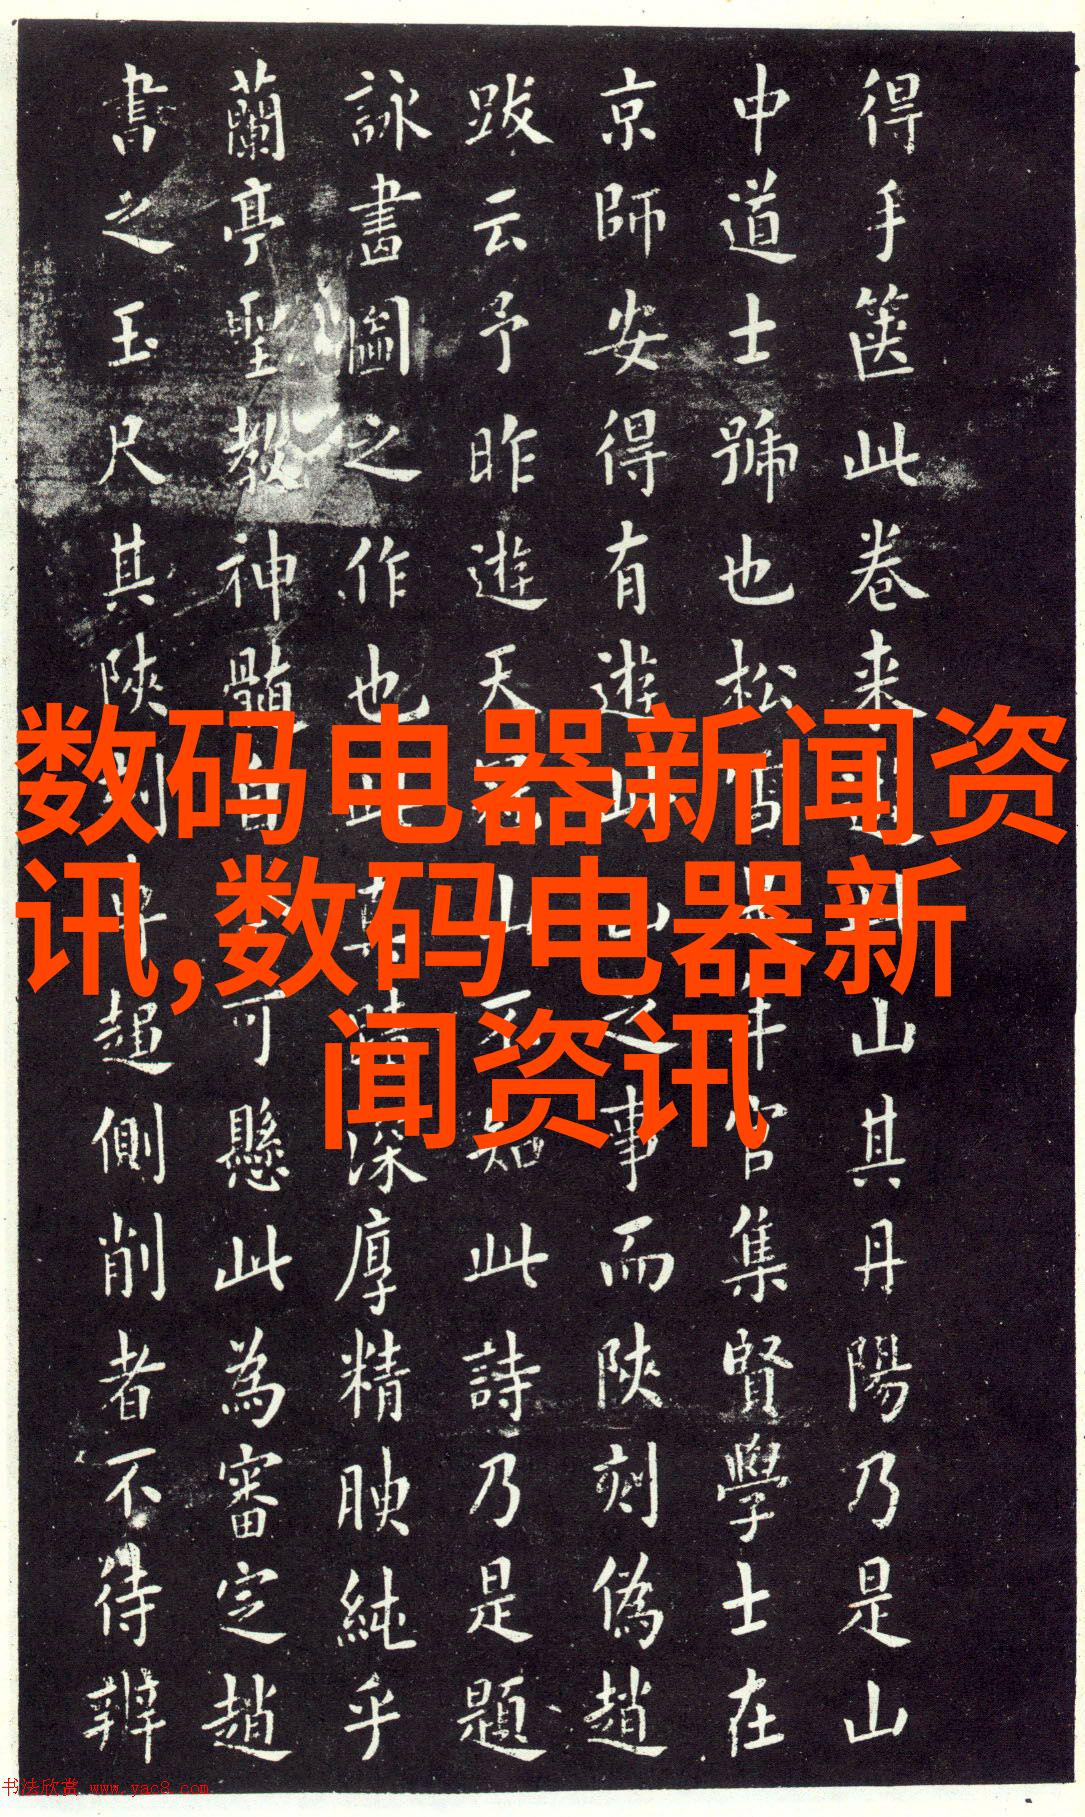 得手篋此卷来山其丹陽乃是山
中道士號也松年官集賢學士在
京師安得有遊山之事而陝刻偽趙
跋云予昨遊天山不知此詩乃是題
詠畫圖之作也此深厚精腴純乎
蘭亭聖教神髓自可懸此為審定趙
書之玉尺其陝刻超側削者不待辨
数码电器新闻资
讯,数码电器新
闻资讯
书法欣赏 www.yac8.com